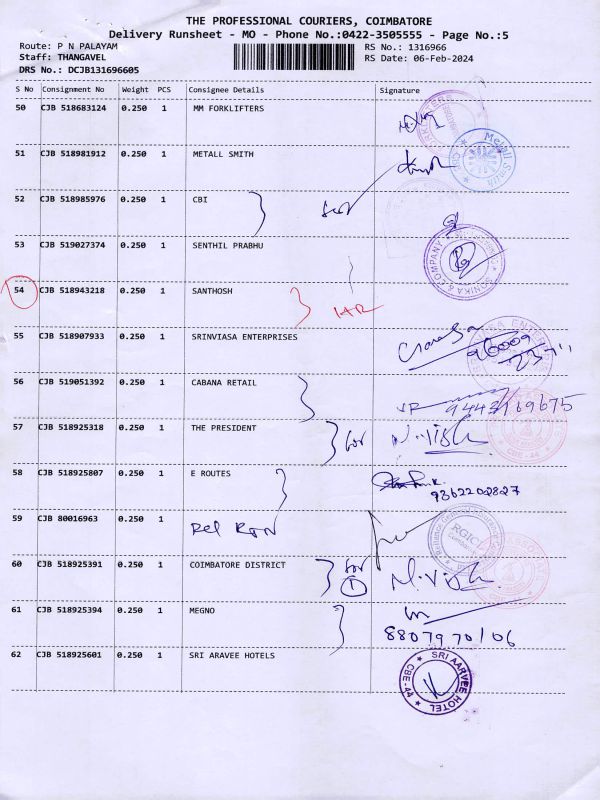 THE PROFESSIONAL COURIERS, COIMBATORE
Delivery Runsheet - MO - Phone No.:0422-3505555 - Page No.:5
Route: P N PALAYAM RS No.: 1316966
Staff: THANGAVEL RS Date: 06-Feb-2024
DRS No.: DCJB131696605
S No Consignment No Weight PCS Consignee Details Signature
50 CJB 518683124 0.250 1 MM FORKLIFTERS
51 CJB 518981912 0.250 1 METALL SMITH
Metall Smith
52 CJB 518985976 0.250 1 CBI
53 CJB 519027374 0.250 1 SENTHIL PRABHU
& COMPANY
54 CJB 518943218 0.250 1 SANTHOSH
55 CJB 518907933 0.250 1 SRINVIASA ENTERPRISES
56 CJB 519051392 0.250 1 CABANA RETAIL
9443169675
57 CJB 518925318 0.250 1 THE PRESIDENT
for
CBE-44
58 CJB 518925807 0.250 1 E ROUTES
9362202827
59 CJB 80016963 0.250 1
RGICL
60 CJB 518925391 0.250 1 COIMBATORE DISTRICT
for
1
61 CJB 518925394 0.250 1 MEGNO
8807970106
62 CJB 518925601 0.250 1 SRI ARAVEE HOTELS
SRI AARVEE HOTEL
CBE-44